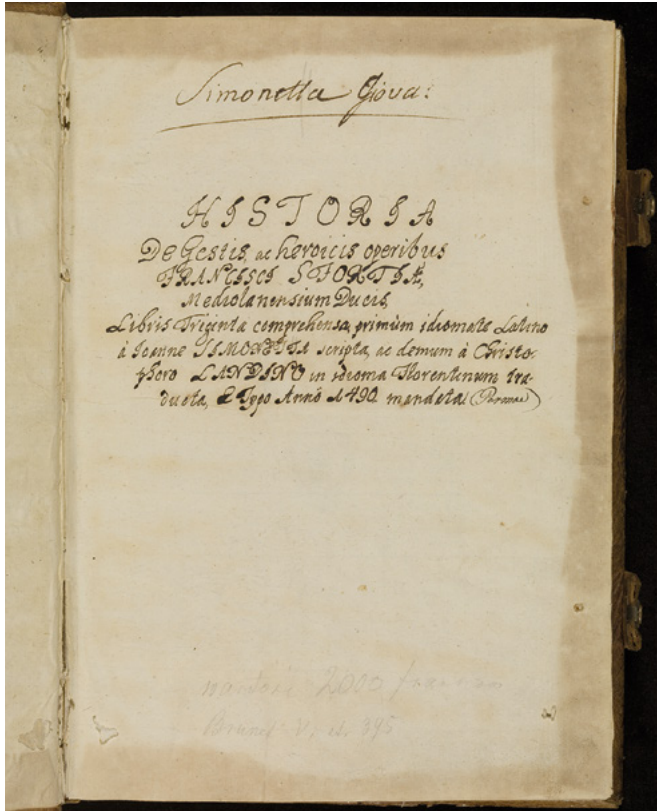 Simonetta Giova:
HISTORIA
De Gestis, ac heroicis operibus
FRANCISCI SFORTIÆ,
Mediolanensium Ducis,
Libris Triginta comprehensa, primùm idiomate Latino
à Joanne SIMONETTA scripta, ac demum à Christo-
phoro LANDINO in idioma Florentinum tra-
ducta, & Typo Anno 1490 mandata (Parmae)
2000
Brunet V, 395